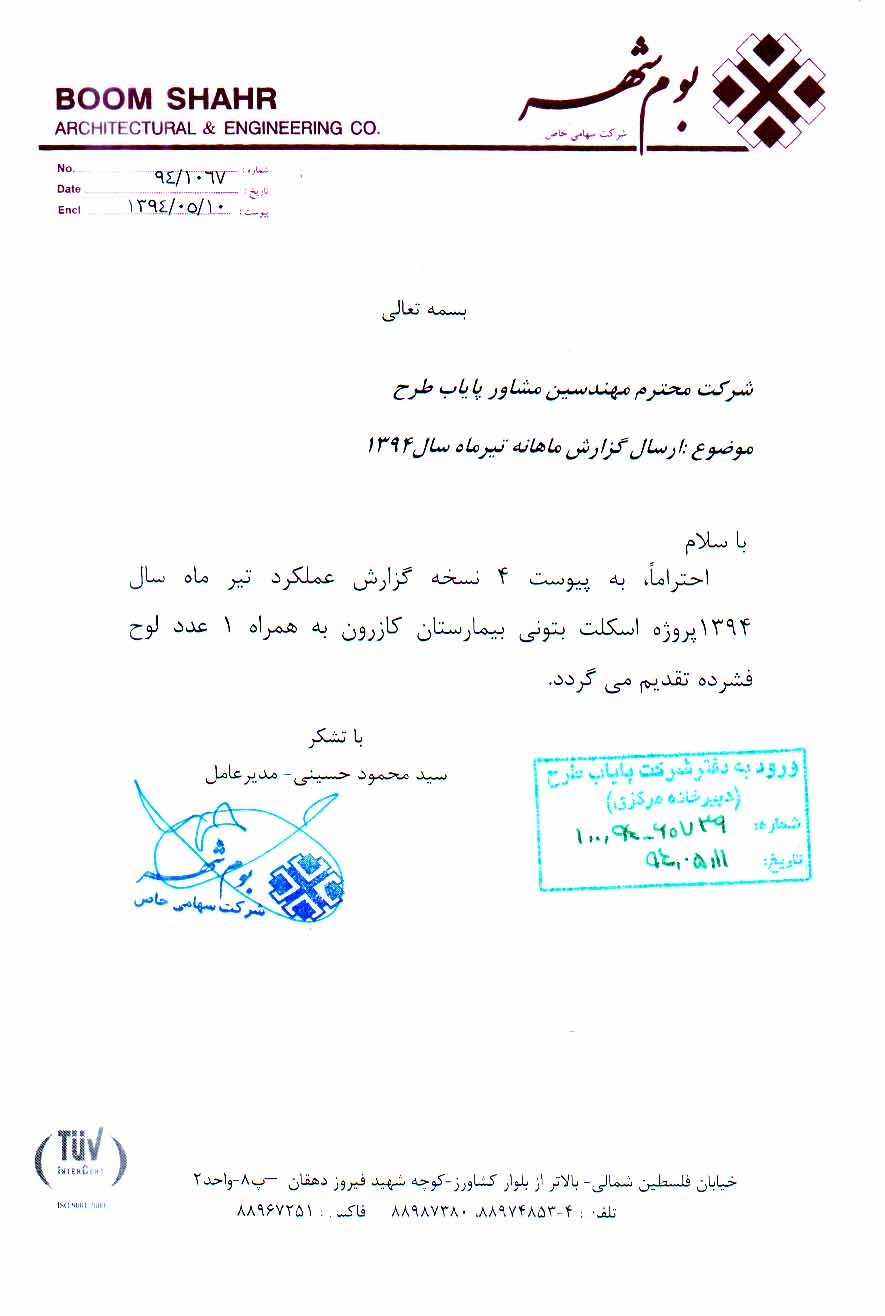 بوم شهر
شرکت سهامی خاص
BOOM SHAHR
ARCHITECTURAL & ENGINEERING CO.
No. ۹٤/۱۰٦۷ شماره:
Date تاریخ:
Encl ۱۳۹٤/۰٥/۱۰ پیوست:
بسمه تعالی
شرکت محترم مهندسین مشاور پایاب طرح
موضوع :ارسال گزارش ماهانه تیرماه سال۱۳۹۴
با سلام
احتراماً، به پیوست ۴ نسخه گزارش عملکرد تیر ماه سال
۱۳۹۴پروژه اسکلت بتونی بیمارستان کازرون به همراه ۱ عدد لوح
فشرده تقدیم می گردد.
با تشکر
سید محمود حسینی- مدیرعامل
بوم شهر
شرکت سهامی خاص
ورود به دفتر شرکت پایاب طرح
(دبیرخانه مرکزی)
شماره:
تاریخ:
TÜV
INTERCERT
ISO 9001:2000
خیابان فلسطین شمالی- بالاتر از بلوار کشاورز-کوچه شهید فیروز دهقان –پ۸-واحد۲
تلفن : ۴-۸۸۹۷۴۸۵۳، ۸۸۹۸۷۳۸۰ فاکس : ۸۸۹۶۷۲۵۱